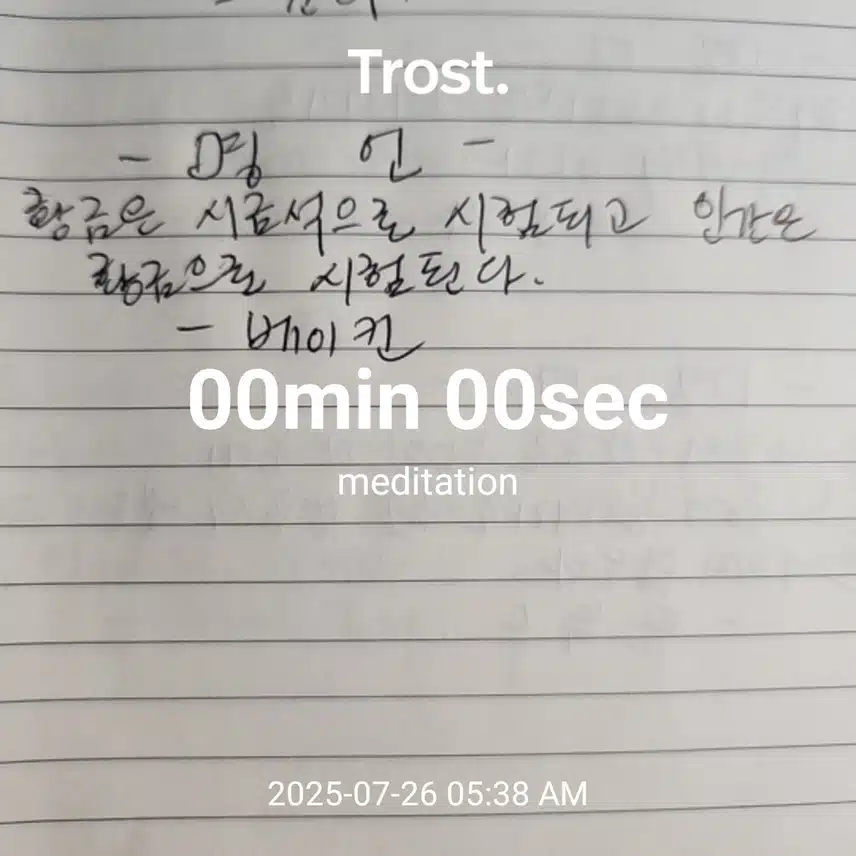 Trost.
- 명 언 -
황금은 시금석으로 시험되고 인간은
황금으로 시험된다.
- 베이컨
00min 00sec
meditation
2025-07-26 05:38 AM